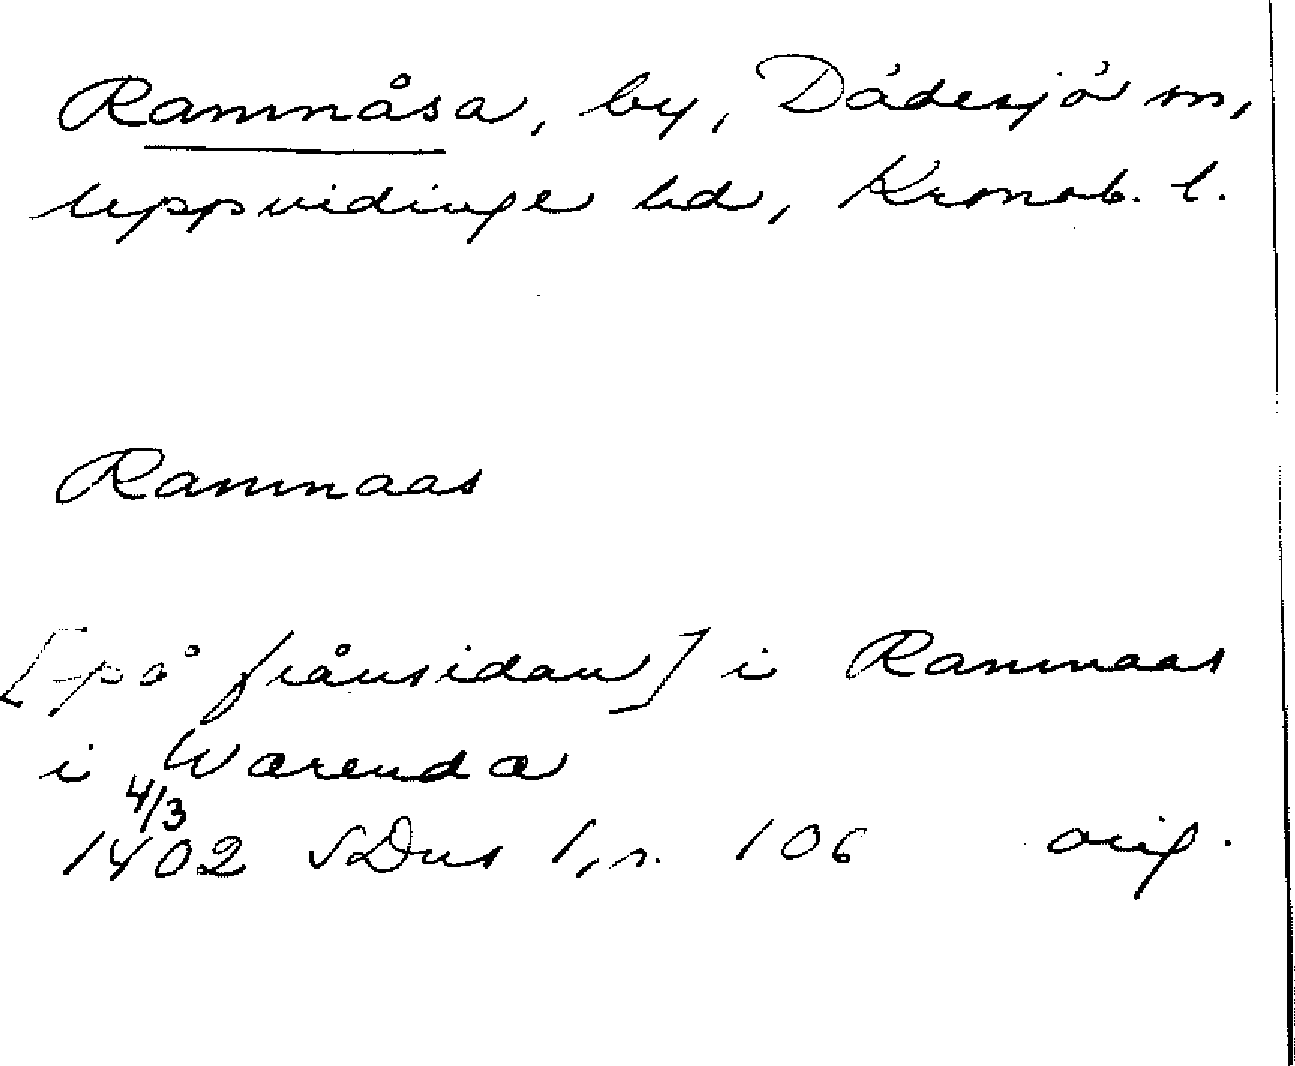 Ramnåsa, by, Dädesjö sn,
Uppvidinge hd, Kronob. l.
Ramnaas
[på frånsidan] i Ramnaas
i Wærendæ
4/3
1402 SDns 1, s. 106 orig.